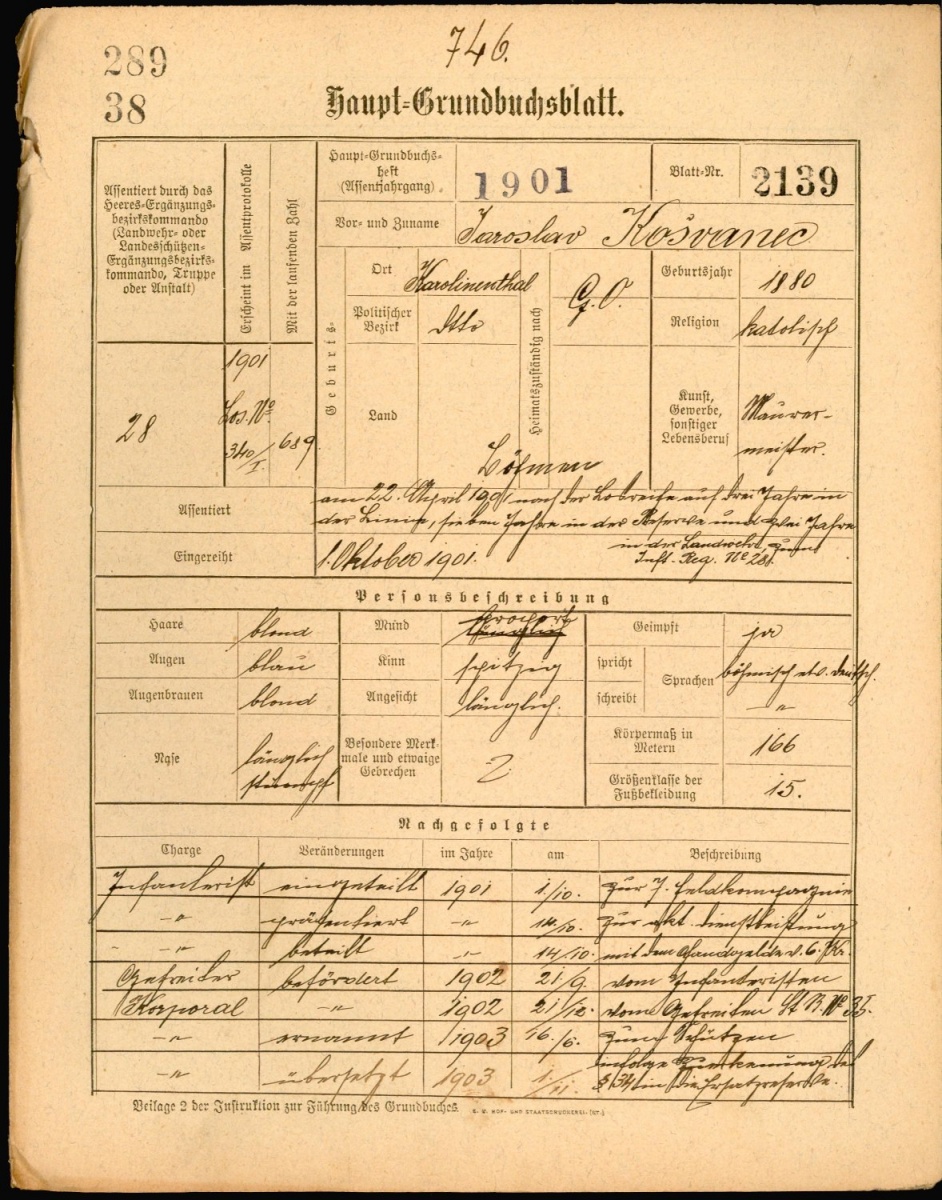 289
746.
38
Haupt-Grundbuchsblatt.
Assentiert durch das
Heeres-Ergänzungs-
bezirkskommando
(Landwehr- oder
Landesschützen-
Ergänzungsbezirks-
kommando, Truppe
oder Anstalt)
Erscheint im Assentprotokolle
Mit der laufenden Zahl
Haupt-Grundbuchs-
heft
(Assentjahrgang)
1901
Blatt-Nr.
2139
Vor- und Zuname
Jaroslav Košvanec
Geburts-
Ort
Karolinenthal
Politischer
Bezirk
dtto
Land
Böhmen
Heimatszuständig nach
G. O.
Geburtsjahr
1880
Religion
katolisch
Kunst,
Gewerbe,
sonstiger
Lebensberuf
Maurer-
meister.
28
1901
Los. No
340/I
689
Assentiert
am 22. April 1901 nach der Losreihe auf drei Jahre in
der Linie, sieben Jahre in der Reserve und zwei Jahre
in der Landwehr, zum
Inft. Reg. No 28.
Eingereiht
1. Oktober 1901.
Personsbeschreibung
Haare
blond
Mund
proport.
länglich
Geimpft
ja
Augen
blau
Kinn
spitzig
spricht
schreibt
Sprachen
böhmisch etv. deutsch.
"
Augenbrauen
blond
Angesicht
länglich.
Nase
länglich
stumpf
Besondere Merk-
male und etwaige
Gebrechen
Körpermaß in
Metern
166
Größenklasse der
Fußbekleidung
15.
Nachgefolgte
Charge Veränderungen im Jahre am Beschreibung
Infanterist eingeteilt 1901 1./10. zur 7. Feldkompagnie
-"- präsentiert -"- 14/10. zur akt. Dienstleistung
-"- beteilt " 14/10. mit dem Handgelde v. 6. Kr.
Gefreiter befördert 1902 21/9. vom Infanteristen
Korporal -"- 1902 21/12. vom Gefreiten St. B. No 35.
-"- ernannt 1903 16./6. zum Schützen
-"- übersetzt 1903 1/11. infolge Zuerkennung des
§ 34 in die Ersatzreserve.
Beilage 2 der Instruktion zur Führung des Grundbuches.
K. K. HOF- UND STAATSDRUCKEREI.